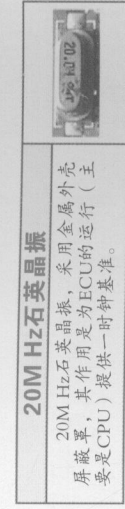 20M Hz石英晶振
20M Hz石英晶振，采用金属外壳
屏蔽罩，其作用是为ECU的运行（主
要是CPU）提供一时钟基准。
20.0M